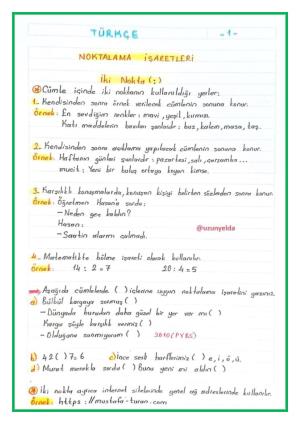 TÜRKÇE -1-
NOKTALAMA İŞARETLERİ
İki Nokta (:)
Cümle içinde iki noktanın kullanıldığı yerler:
1. Kendisinden sonra örnek verilecek cümlenin sonuna konur.
Örnek: En sevdiğim renkler: mavi, yeşil, kırmızı.
Katı maddelerin bazıları şunlardır: buz, kalem, masa, taş.
2. Kendisinden sonra açıklama yapılacak cümlenin sonuna konur.
Örnek: Haftanın günleri şunlardır: pazartesi, salı, çarşamba...
mucit: Yeni bir buluş ortaya koyan kimse.
3. Karşılıklı konuşmalarda, konuşan kişiyi belirten sözlerden sonra konur.
Örnek: Öğretmen Hasan'a sordu:
- Neden geç kaldın?
Hasan:
@uzunyelda
- Saatin alarmı çalmadı.
4. Matematikte bölme işareti olarak kullanılır.
Örnek: 14 : 2 = 7 20 : 4 = 5
Aşağıda cümlelerde ( ) içlerine uygun noktalama işaretini yazınız.
a) Bülbül kargaya sormuş ( )
- Dünyada buradan daha güzel bir yer var mı ( )
Karga şöyle karşılık vermiş ( )
- Olduğunu sanmıyorum ( )
b) 42 ( ) 7 = 6 c) İnce sesli harflerimiz ( ) e, i, ö, ü.
d) Murat merakla sordu ( ) Bunu yeni mi aldın ( )
İki nokta ayrıca internet sitelerinde genel ağ adreslerinde kullanılır.
Örnek: https://mustafa-turan.com